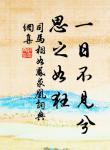 一日不見兮
思之如狂
司馬相如鳳求凰詞典
網